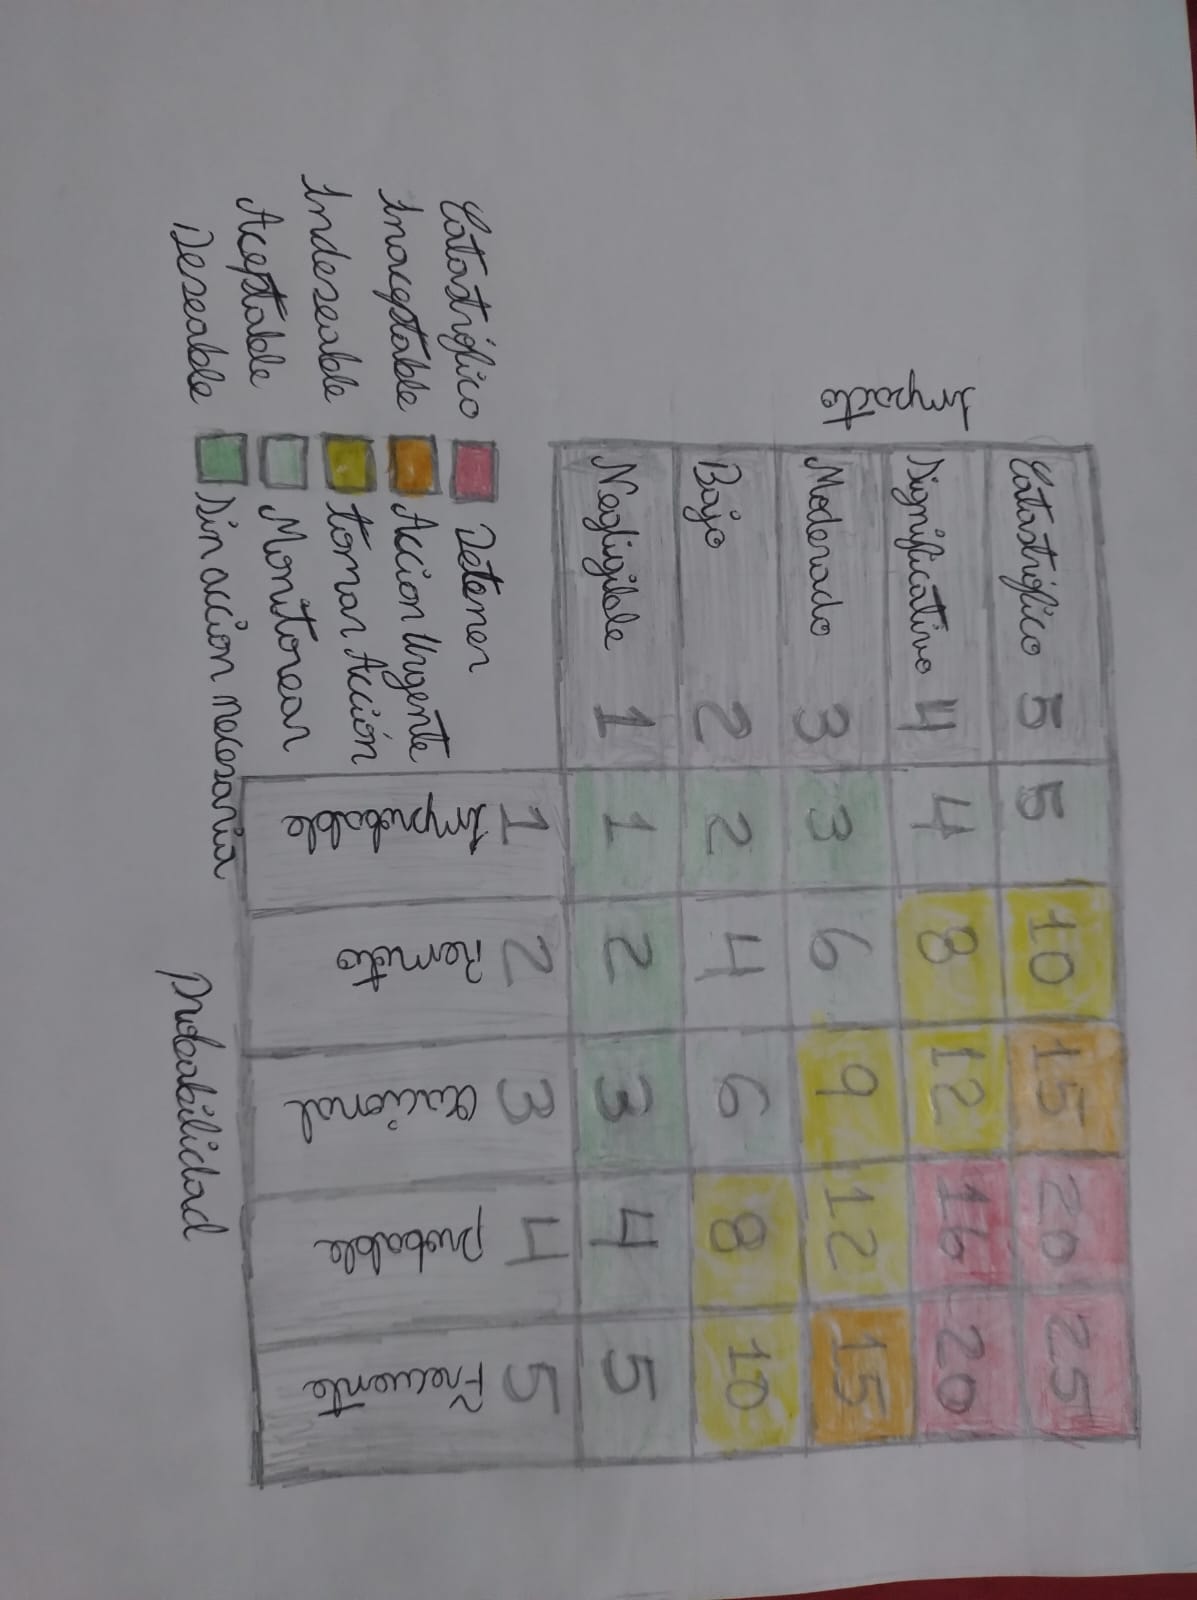 Impacto
Catastrófico 5 5 10 15 20 25
Significativo 4 4 8 12 16 20
Moderado 3 3 6 9 12 15
Bajo 2 2 4 6 8 10
Negligible 1 1 2 3 4 5
1 2 3 4 5
Improbable Remoto Ocacional Probable Frecuente
Catastrófico Detener
Inaceptable Accion Urgente
Indeseable tomar Acción
Aceptable Monitorear
Deseable Sin accion necesaria
Probabilidad